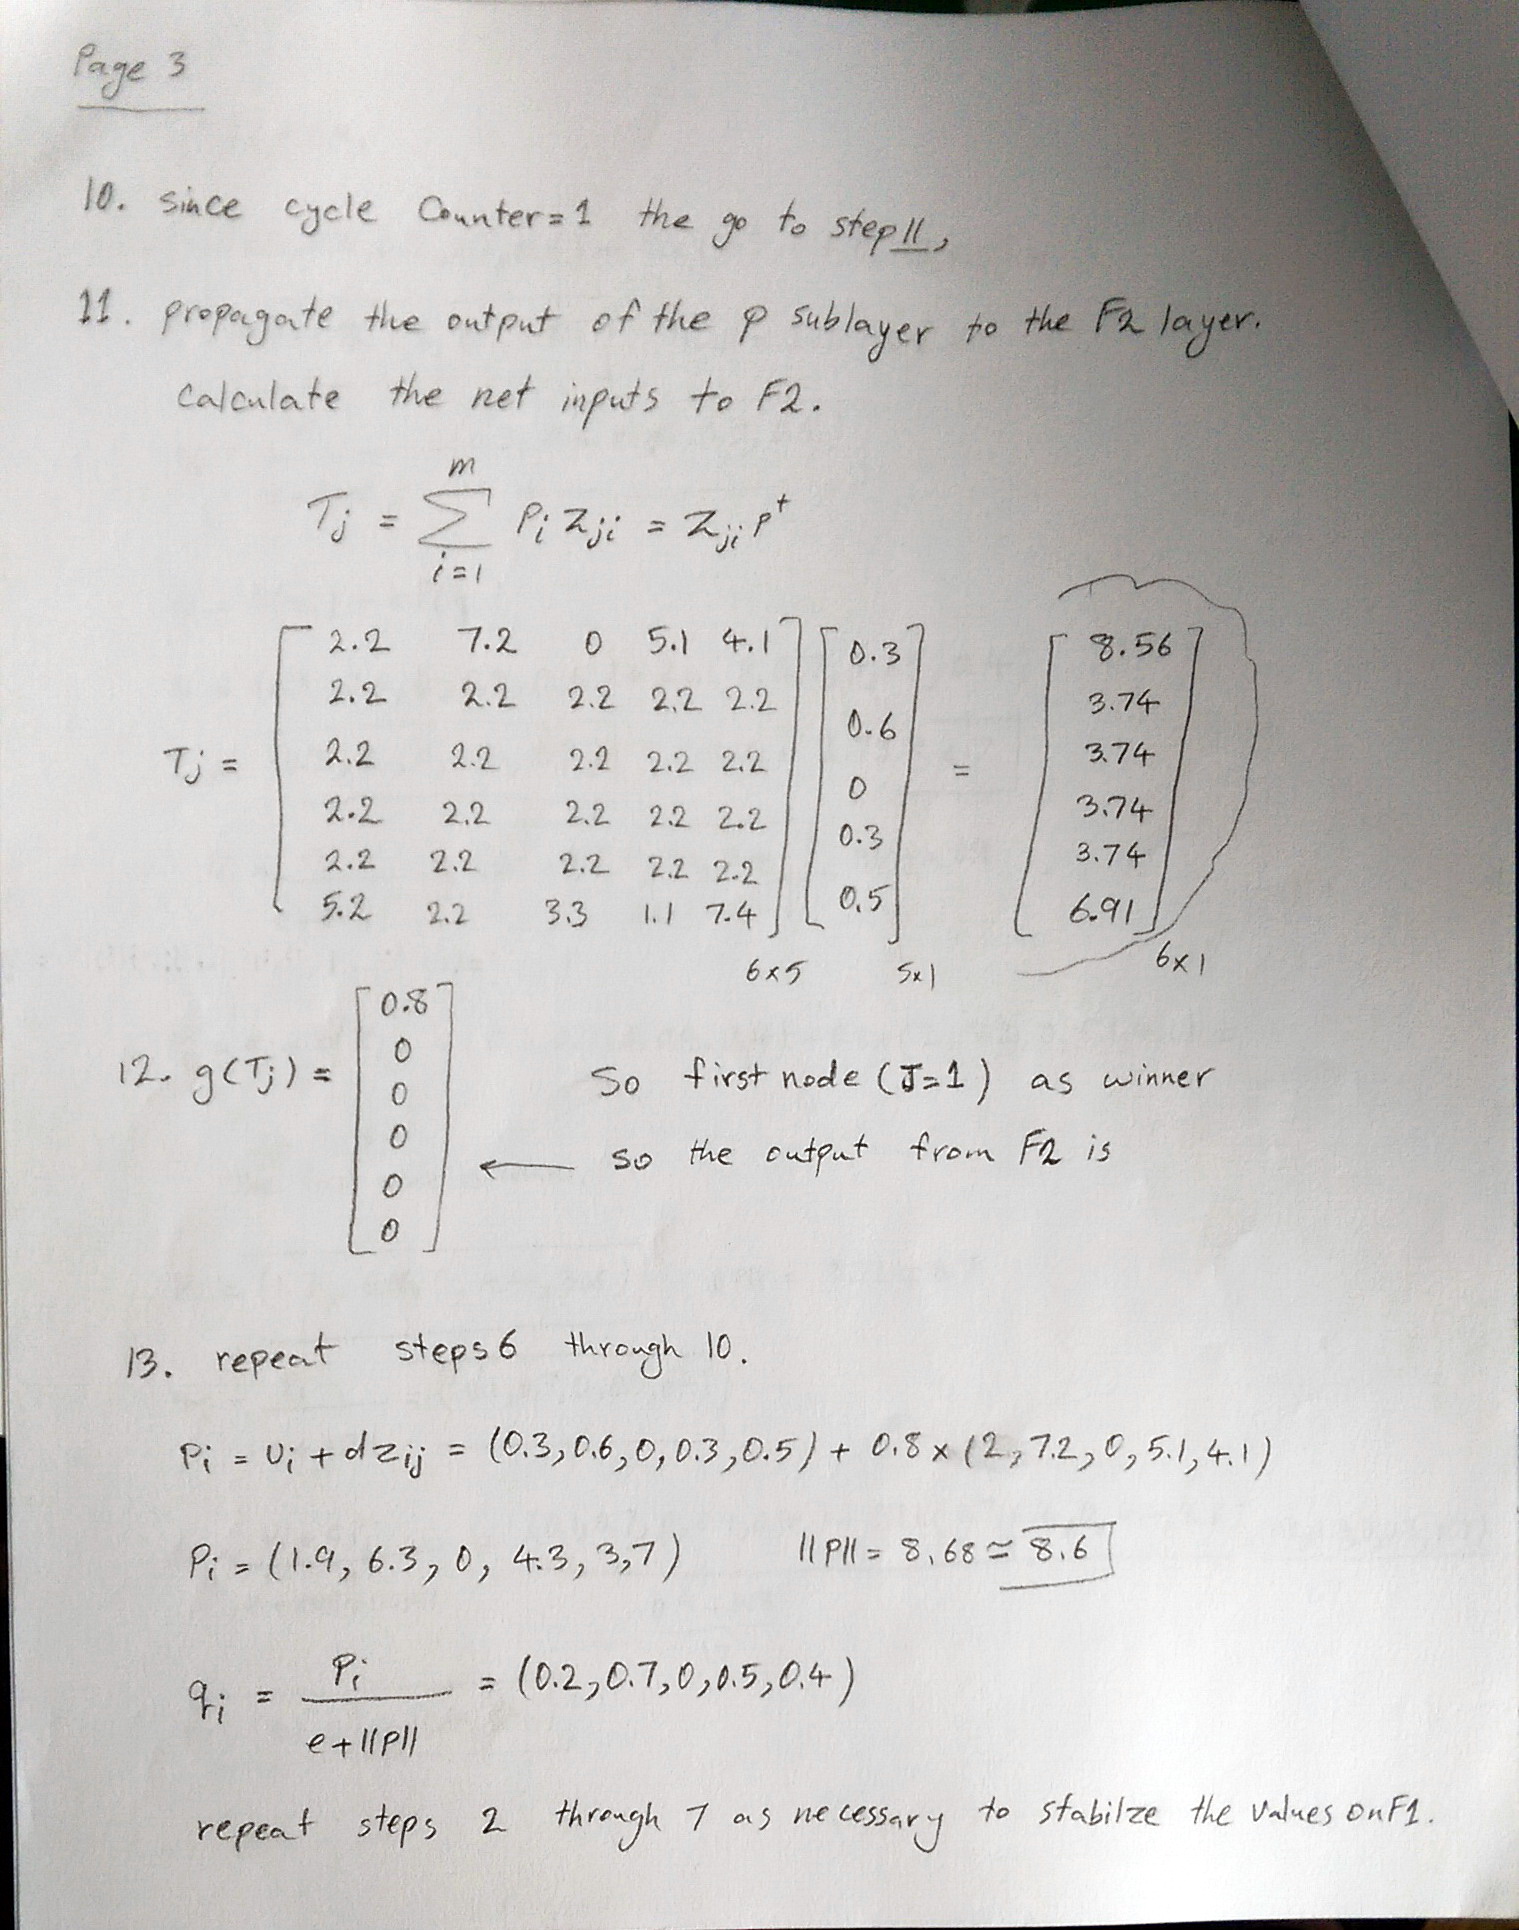 Page 3
10. since cycle Counter=1 the go to step 11,
11. propagate the output of the P sublayer to the F2 layer.
calculate the net inputs to F2.
Tj = ∑ (i=1 to m) Pi Zji = Zji P^t
Tj = [ 2.2 7.2 0 5.1 4.1 ] [ 0.3 ] = [ 8.56 ]
2.2 2.2 2.2 2.2 2.2 0.6 3.74
2.2 2.2 2.2 2.2 2.2 0 3.74
2.2 2.2 2.2 2.2 2.2 0.3 3.74
2.2 2.2 2.2 2.2 2.2 0.5 3.74
5.2 2.2 3.3 1.1 7.4 6.91
6x5 5x1 6x1
12. g(Tj) = [ 0.8 0 0 0 0 0 ]
So first node (J=1) as winner
← so the output from F2 is
13. repeat steps 6 through 10.
Pi = Ui + dzij = (0.3, 0.6, 0, 0.3, 0.5) + 0.8 x (2, 7.2, 0, 5.1, 4.1)
Pi = (1.9, 6.3, 0, 4.3, 3,7) ||P|| = 8.68 ≃ 8.6
qi = Pi / e+||P|| = (0.2, 0.7, 0, 0.5, 0.4)
repeat steps 2 through 7 as necessary to stabilze the values on F1.